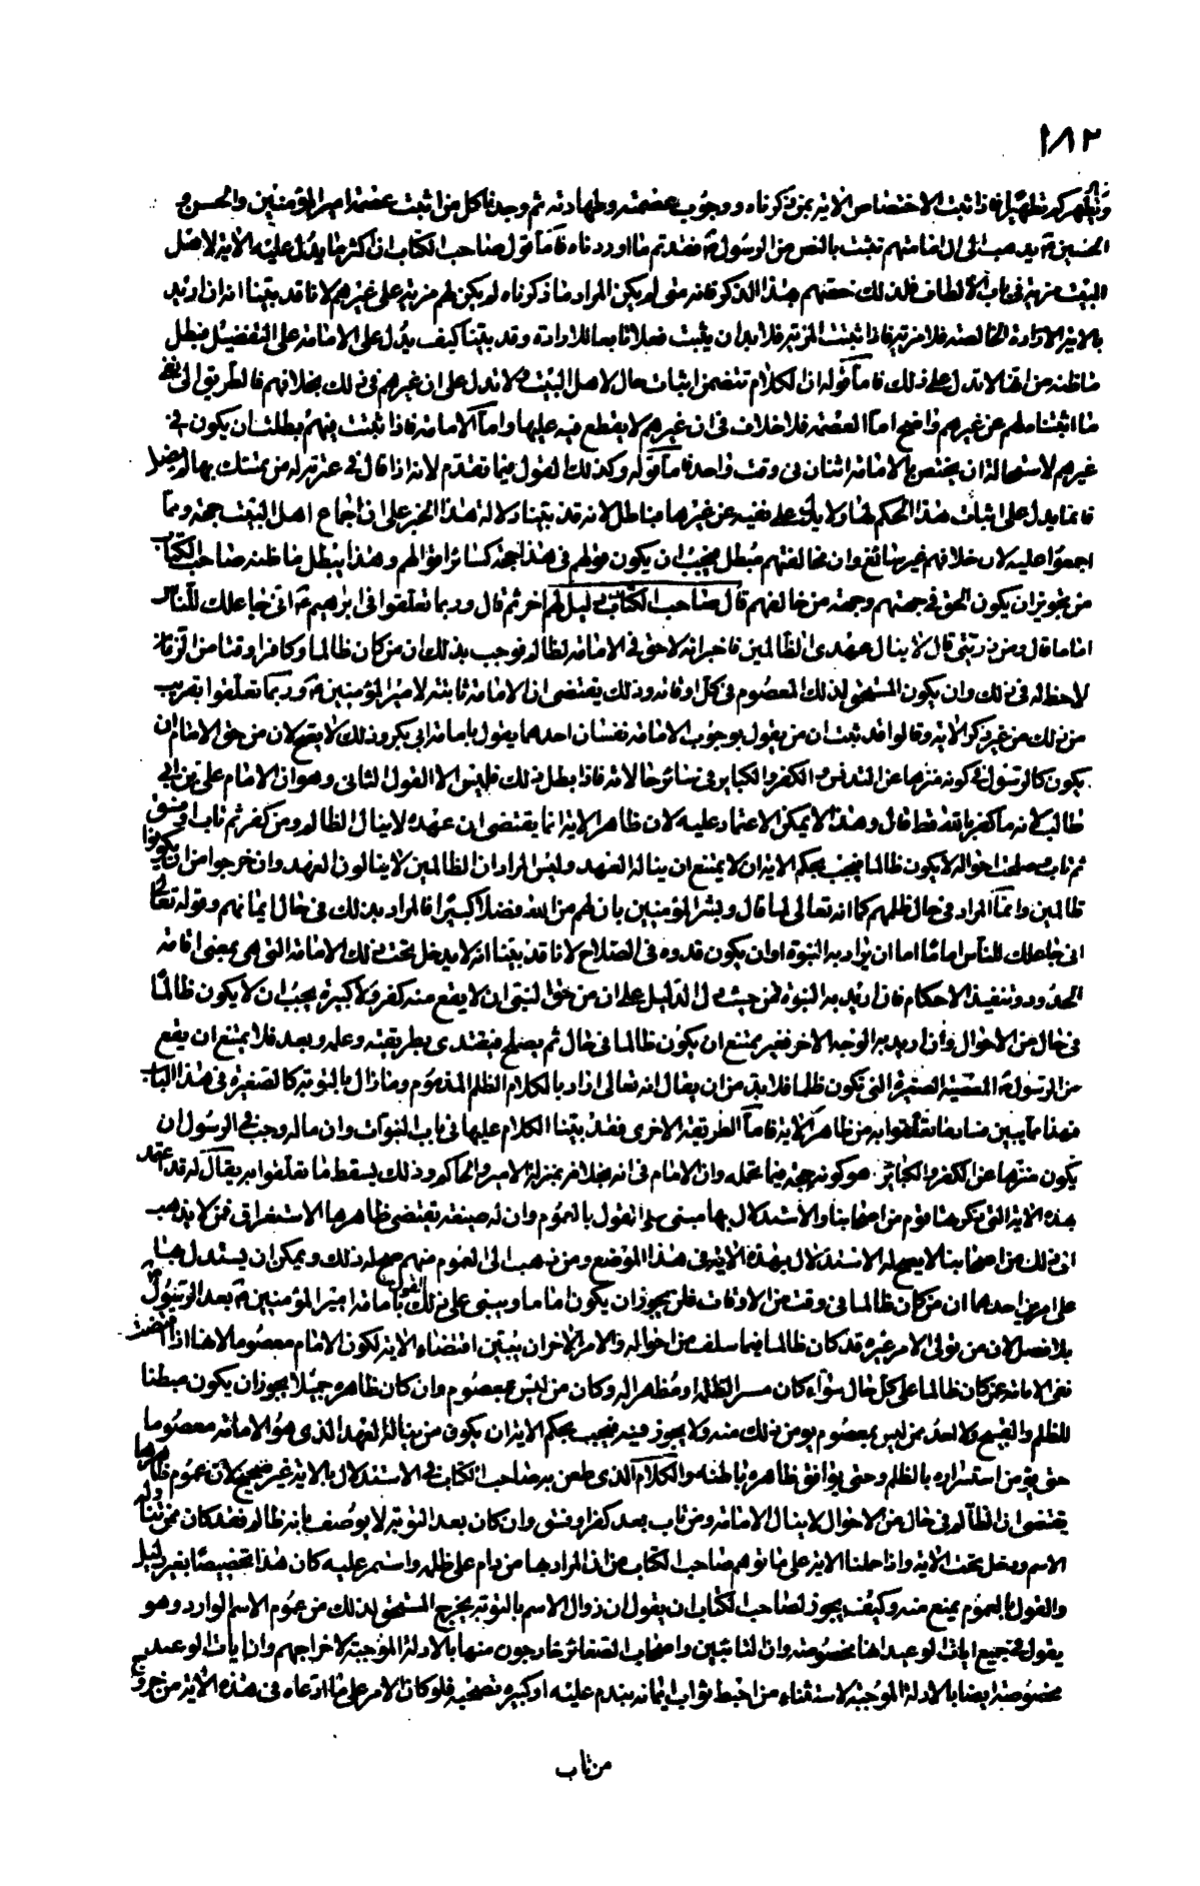 ١٨٢
ويطهركم تطهيرا فاذا ثبت الاختصاص الاية بمن ذكرناه ووجوب عصمته وطهارته ثم وجدنا كل من اثبت عصمة امير المؤمنين والحسن و
الحسين ع يذهب الى ان امامتهم تثبت بالنص من الرسول ص فقد تم ما اوردناه فاما قول صاحب الكتاب ان اكثر ما يدل عليه الاية لاهل
البيت مزية في باب الالطاف فلذلك خصهم بهذا الذكر فانه متى لم يكن المراد ما ذكرناه لم يكن لهم مزية على غيرهم لانا قد بينا انه ان اريد
بالاية الارادة الخالصة فلا مزية فاذا ثبتت المزية فلا بد ان يثبت فعلا تابعا للارادة وقد بينا كيف يدل على الامامة على التفصيل فبطل
ما ظنه من انها لا تدل على ذلك فاما قوله ان الكلام تتضمن اثبات حال لاهل البيت ولا تدل على ان غيرهم في ذلك بخلافهم فالطريق الى نفي
ما اثبتناه لهم عن غيرهم واضح اما العصمة فلا خلاف في ان غيرهم لا يقطع فيه عليها واما الامامة فاذا ثبتت فيهم بطلت ان يكون في
غيرهم لاستحالة ان يختص بالامامة اثنان في وقت واحد فاما قوله وكذلك القول فيما تقدم لانه اذا قال في عترته من تمسك بها لم يضل
فانما يدل على اثبات هذا الحكم لها ولا يدل على نفيه عن غيرها فباطل لانه قد بينا دلالة هذا الخبر على ان اجماع اهل البيت حجة وما
اجمعوا عليه لان خلافهم غير سائغ وان مخالفتهم مبطل فيجب ان يكون قولهم في هذا حجة كسائر اقوالهم وهذا يبطل ما ظنه صاحب الكتاب
من تجويز ان يكون الحق في جهتهم وجهة من خالفهم قال صاحب الكتاب دليل لهم اخر ثم قال وربما تعلقوا في ابرهيم ع اني جاعلك للناس
اماما قال ومن ذريتي قال لا ينال عهدي الظالمين فاخبر انه لا حق في الامامة لظالم فوجب بذلك ان من كان ظالما وكافرا وقتا من الزمان
لا حظ له في ذلك وان يكون المستحق لذلك المعصوم في كل اوقاته وذلك يقتضي ان الامامة ثابتة لامير المؤمنين ع وربما تعلقوا بقريب
من ذلك من غير ذكر الاية وقالوا قد ثبت ان من يقول بوجوب الامامة نفسان احدهما يقول بامامة ابي بكر وذلك لا يصح لان من حق الامام ان
يكون كالرسول في كونه منزها عن التدنس والكفر والكبائر في سائر حالاته فاذا بطل ذلك فليس الا القول الثاني وهو ان الامام علي بن ابي
طالب لانه ما كفر بالله قط قال وهذا لا يمكن الاعتماد عليه لان ظاهر الاية انما يقتضي ان عهده لا ينال الظالم ومن كفر ثم تاب او فسق
ثم تاب وصلحت احواله لا يكون ظالما فيجب بحكم الاية ان لا يمتنع ان يناله العهد وليس المراد ان الظالمين لا ينالون العهد وان خرجوا من ان يكونوا
ظالمين وانما المراد في حال ظلمهم كما انه تعالى لما قال وبشر المؤمنين بان لهم من الله فضلا كبيرا فالمراد بذلك في حال ايمانهم وقوله تعالى
اني جاعلك للناس اماما اما ان يراد به النبوة او ان يكون قدوة في الصلاح لانا قد بينا انه لا يدخل تحت ذلك الامامة التي هي بمعنى اقامة
الحدود وتنفيذ الاحكام فاذا اريد به النبوة فمن حيث دل الدليل على ان من حق النبي ان لا يقع منه كفر ولا كبيرة يجب ان لا يكون ظالما
في حال من الاحوال وان اريد به الوجه الاخر فغير ممتنع ان يكون ظالما في حال ثم يصلح فيقتدى بطريقته وعلمه وبعد فلا يمتنع ان يقع
من الرسول ص المعصية الصغيرة التي تكون ظلما فلا بد من ان يقال انه تعالى اراد بالكلام الظلم المذموم وما زال بالتوبة كالصغيرة في هذا الباب
فهذا ما يبين فساد ما تعلقوا به من ظاهر الاية فاما الطريقة الاخرى فقد بينا الكلام عليها في باب النبوات وان ما له وجب في الرسول ان
يكون منزها عن الكفر والكبائر هو كونه حجة فيما تحمله وان الامام في انه بخلافه بمنزلة الامير والحاكم وذلك يسقط ما تعلقوا به يقال له قد اعتمد
بهذه الاية التي ذكرها قوم من اصحابنا والاستدلال بها مبني على القول بالعموم وان له صيغة تقتضي ظاهرها الاستغراق فمن لا يذهب
الى ذلك من اصحابنا لا يصح له الاستدلال بهذه الاية في هذا الموضع ومن ذهب الى العموم منهم صح له ذلك ويمكن ان يستدل بها
على امرين احدهما ان من كان ظالما في وقت من الاوقات فلن يجوز ان يكون اماما ويبنى على ذلك القول بامامة امير المؤمنين ع بعد الرسول ص
بلا فصل لان من تولى الامر غيره قد كان ظالما فيما سلف من احواله والامر الاخر ان يبين اقتضاء الاية لكون الامام معصوما لانها اذا اقتضت
نفي الامامة عمن كان ظالما على كل حال سواء كان مسر الظلم او مظهرا له وكان من ليس بمعصوم وان كان ظاهره جميلا يجوز ان يكون مبطنا
للظلم والقبيح ولا احد ممن ليس بمعصوم يؤمن ذلك منه ولا يجوز فيه فيجب بحكم الاية ان يكون من يناله العهد الذي هو الامامة معصوما
حتى يؤمن استسراره بالظلم وحتى يوافق ظاهره باطنه والكلام الذي طعن به صاحب الكتاب في الاستدلال بالاية غير صحيح لان عموم ظاهرها
يقتضي ان الظالم في حال من الاحوال لا ينال الامامة ومن تاب بعد كفر او فسق وان كان بعد التوبة لا يوصف بانه ظالم فقد كان ممن تناوله
الاسم ودخل تحت الاية واذا حملنا الاية على ما توهم صاحب الكتاب من ان المراد بها من دام على ظلمه واستمر عليه كان هذا تخصيصا بغير دليل
والقول بالعموم يمنع منه وكيف يجوز لصاحب الكتاب ان يقول ان زوال الاسم بالتوبة يخرج المستحق لذلك من عموم الاسم الوارد وهو
يقول في جميع ايات الوعيد انها مخصوصة وان التائبين واصحاب الصغائر خارجون منها بالادلة الموجبة لاخراجهم وان ايات الوعيد
مخصوصة ايضا بالادلة الموجبة لاستثناء من احبط ثواب ايمانه بندم عليه او كبيرة تصحبه فلو كان الامر على ما ادعاه في هذه الاية من خروج
من تاب